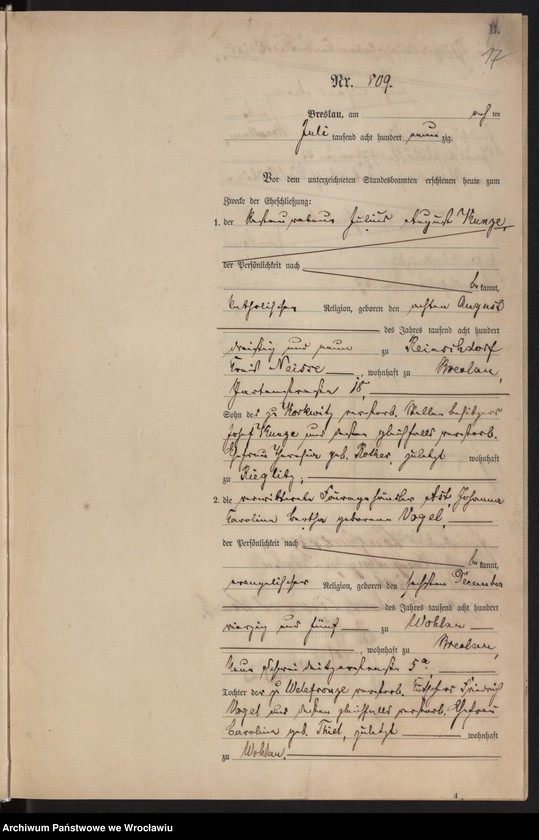 B.
17
Nr. 809.
Breslau, am ten
Juli tausend acht hundert neun zig
Vor dem unterzeichneten Standesbeamten erschienen heute zum
Zwecke der Eheschließung:
1. der Restaurateur Julius August Kunze,
der Persönlichkeit nach
be kannt,
katholischer Religion, geboren den achten August
des Jahres tausend acht hundert
dreißig und neun zu Reinschdorf
Kreis Neisse, wohnhaft zu Breslau,
Gartenstraße 18,
Sohn des zu Korkwitz verstorb. Stellenbesitzers
Josef Kunze und dessen gleichfalls verstorb.
Ehefrau Theresia geb. Rother, zuletzt wohnhaft
zu Rieglitz,
2. die verwittwete Fouragehändler Johanna
Carolina Bertha geborene Vogel,
der Persönlichkeit nach
be kannt,
evangelischer Religion, geboren den sechsten December
des Jahres tausend acht hundert
vierzig und fünf zu Wohlau
, wohnhaft zu Breslau,
Neue Schweidnitzerstraße 5a
Tochter des zu verstorb. Kutschers Friedrich
Vogel und dessen gleichfalls verstorb. Ehefrau
Carolina geb. Thiel, zuletzt wohnhaft
zu Wohlau.
A
Archiwum Państwowe we Wrocławiu